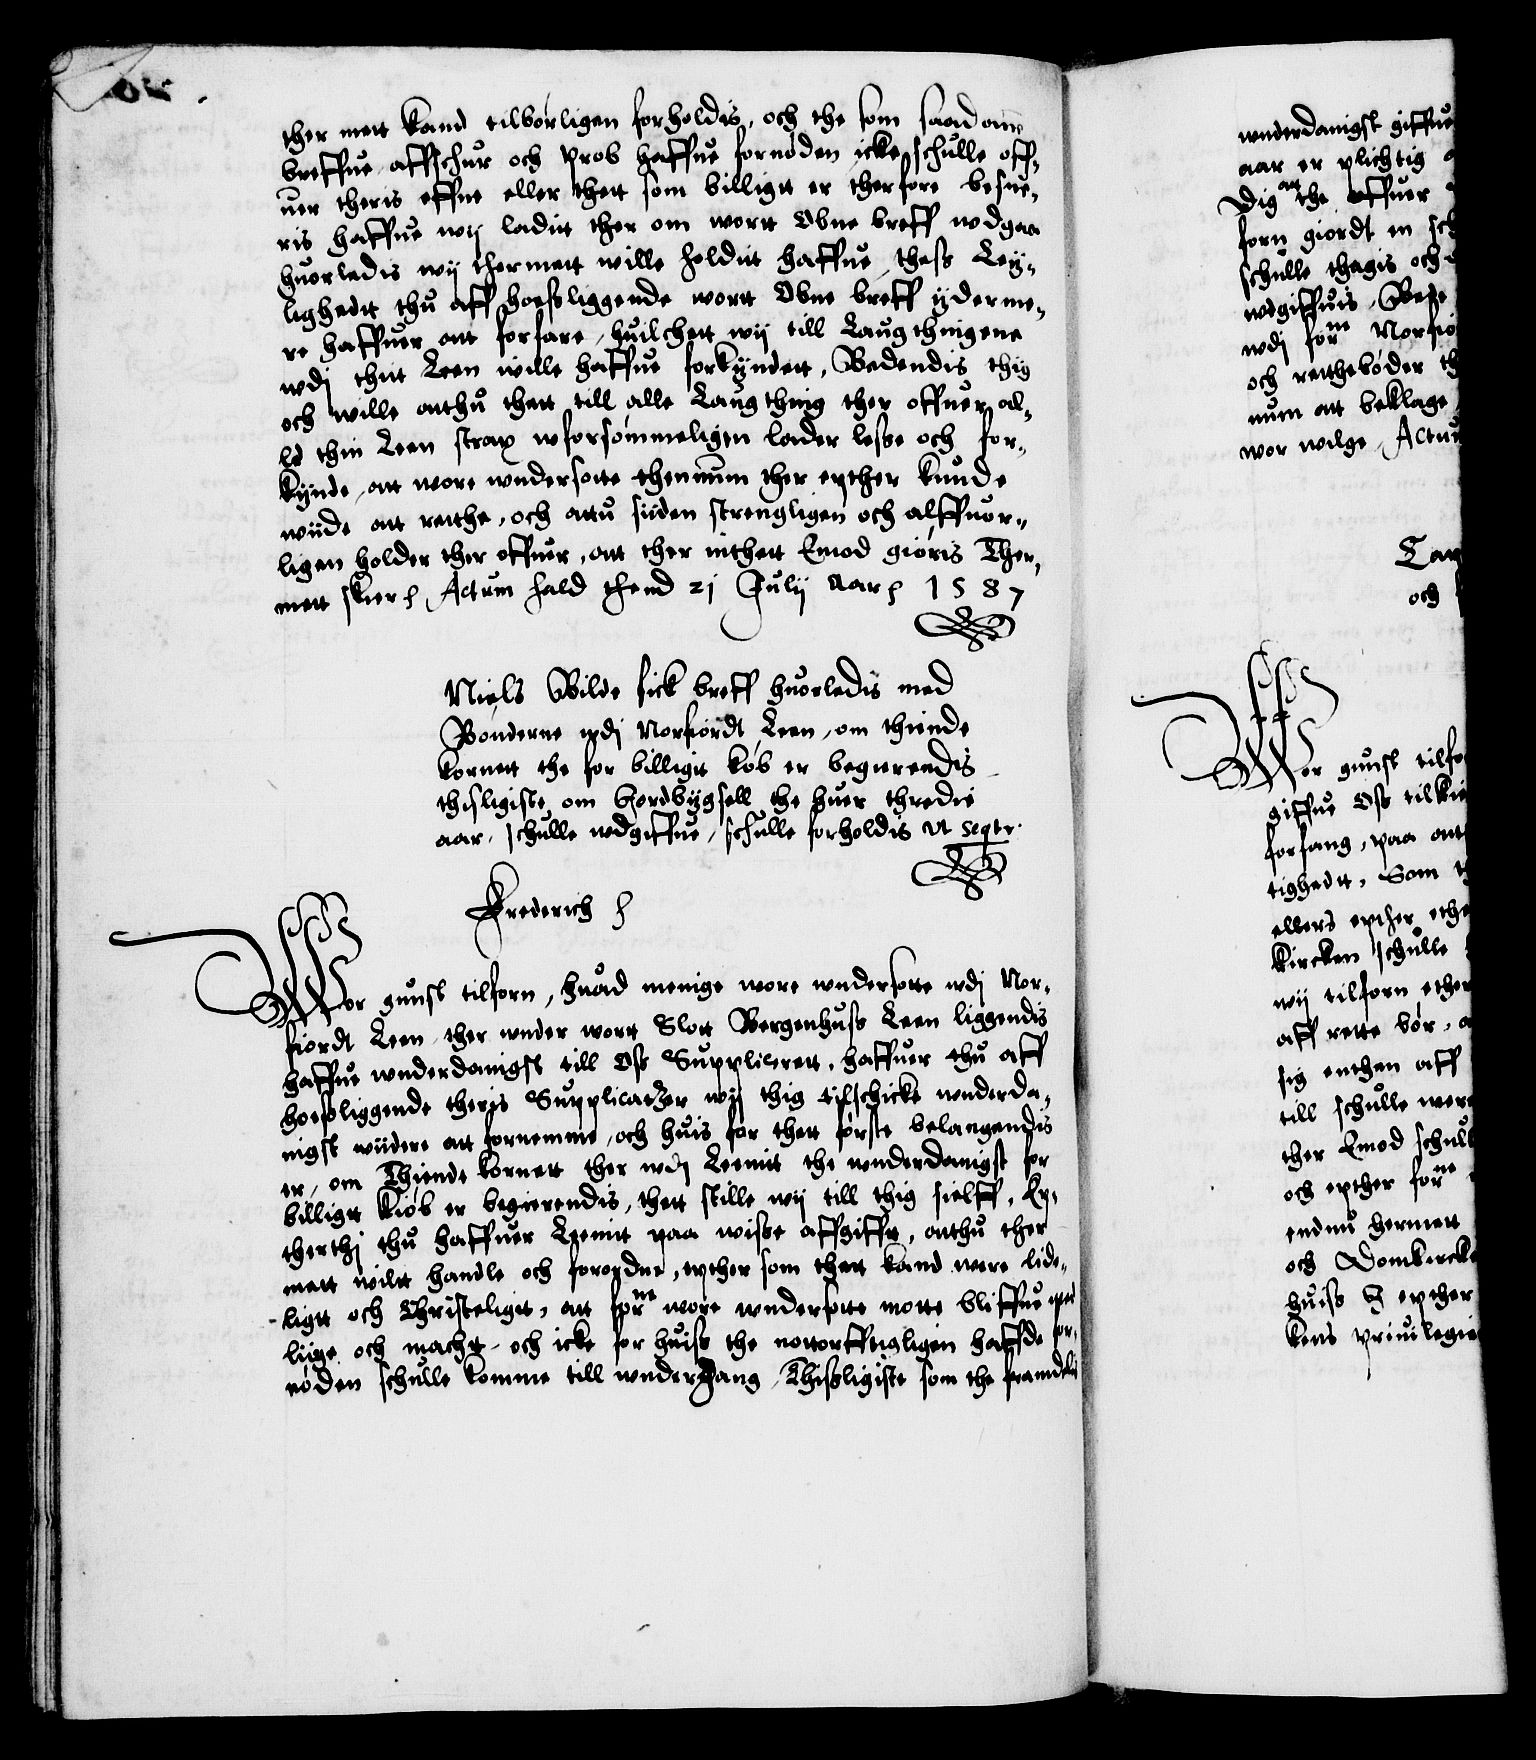 ther mett kand tilbørligen forholdis, och the som saadann
breffue affschur och prob haffue fornøden icke schulle off-
uer theris effne eller thett som billigtt er therfore besue-
ris haffue wij ladiitt ther om wortt Obne breff wdgaa
huorledis wij thermett wille holdiitt haffue, thess Ley-
lighedtt thu aff hoessliggende wortt Obne breff yderme-
re haffuer att forfare, huilchett wij till Laugthingene
wdj thiitt Leen wille haffue forkyndett, Bedendis thig
och wille atthu thett till alle Laugthing ther offuer al-
ld thin Leen strax wforsømmeligen lader lesse och for-
kynde, att wore wndersotte thennum ther epther kunde
wiide att rette, och attu siiden strengligen och alffuor-
ligen holder ther offuer, att ther inthett Emod giøris Ther-
mett skier Actum Hald thend 21 Julij Aar 1587
Niels Bilde fick breff huorledis med
Bønderne wdj Norfiordt Leen, om thiende
kornett the for billigtt køb er begierendis
thisligiste om Jordbygsell the huer thredie
aar, schulle wdgiffue, schulle forholdis ut seqtr.
Frederich
Wor gunst tilforn, huad menige wore wndersotte wdj Nor-
fiordt Leen ther wnder wortt Slott Bergenhuss Leen liggendis
haffue wnderdanigst till Oss Supplicerett, haffuer thu aff
hoessliggende theris Supplicatzer wij thig tilschicke wnderda-
nigst wiidere att fornemme, och huis for thett første belangendis
er, om Thiende kornett ther wdj Leenitt the wnderdanigst for
billigtt kiøb er begierendis, thett stille wij till thig sielff, Ep-
therthj thu haffuer Leenitt paa wisse affgifft, atthu ther
mett wiltt handle och forordne, epther som thett kand were lide-
ligtt och Christeligtt, att forne wore wndersotte motte bliffue wed
liige och macht, och icke for huiss the nottorfftigligen haffde for-
nøden schulle komme till wndergang, Thissligiste som the framdelis
wnderdanigst giffue
aar er plichtig
Dig att the offuer
forn giordt en sch
schulle thagis och
wdgiffuis, Bede
wdj forne Norfio
och retthebøder th
num att beklage
wor wilge, Actum
och
Wor gunst tilfo
giffue Oss tilkie
forfang, paa
tighedtt, Som th
ellers epther ethe
kircken schulle
wij tilforn ether
aff rette bør,
sig enthen aff
till schulle were
ther Emod schull
och epther forne
endnu hermett
och Domkircke
huiss I epther
kens priuilegie